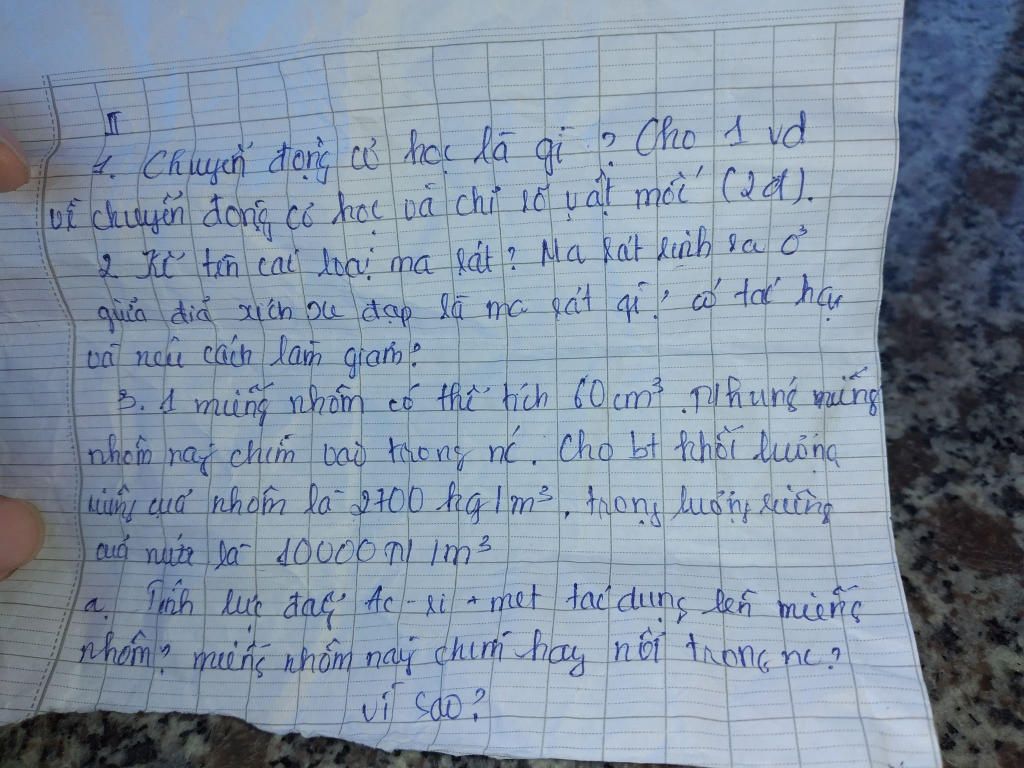 II
1. Chuyển động cơ học là gì? Cho 1 vd
về chuyển động cơ học và chỉ rõ vật mốc (2đ).
2 Kể tên các loại ma sát? Ma sát sinh ra ở
giữa đĩa xích xe đạp là ma sát gì? có tác hại
và nêu cách làm giảm?
3. 1 miếng nhôm có thể tích 60cm³. Nhúng miếng
nhôm này chìm vào trong nc. Cho bt khối lượng
riêng của nhôm là 2700 kg/m³, trọng lượng riêng
của nước là 10000N/m³
a. Tính lực đẩy Ac-si-met tác dụng lên miếng
nhôm? miếng nhôm này chìm hay nổi trong nc?
vì sao?